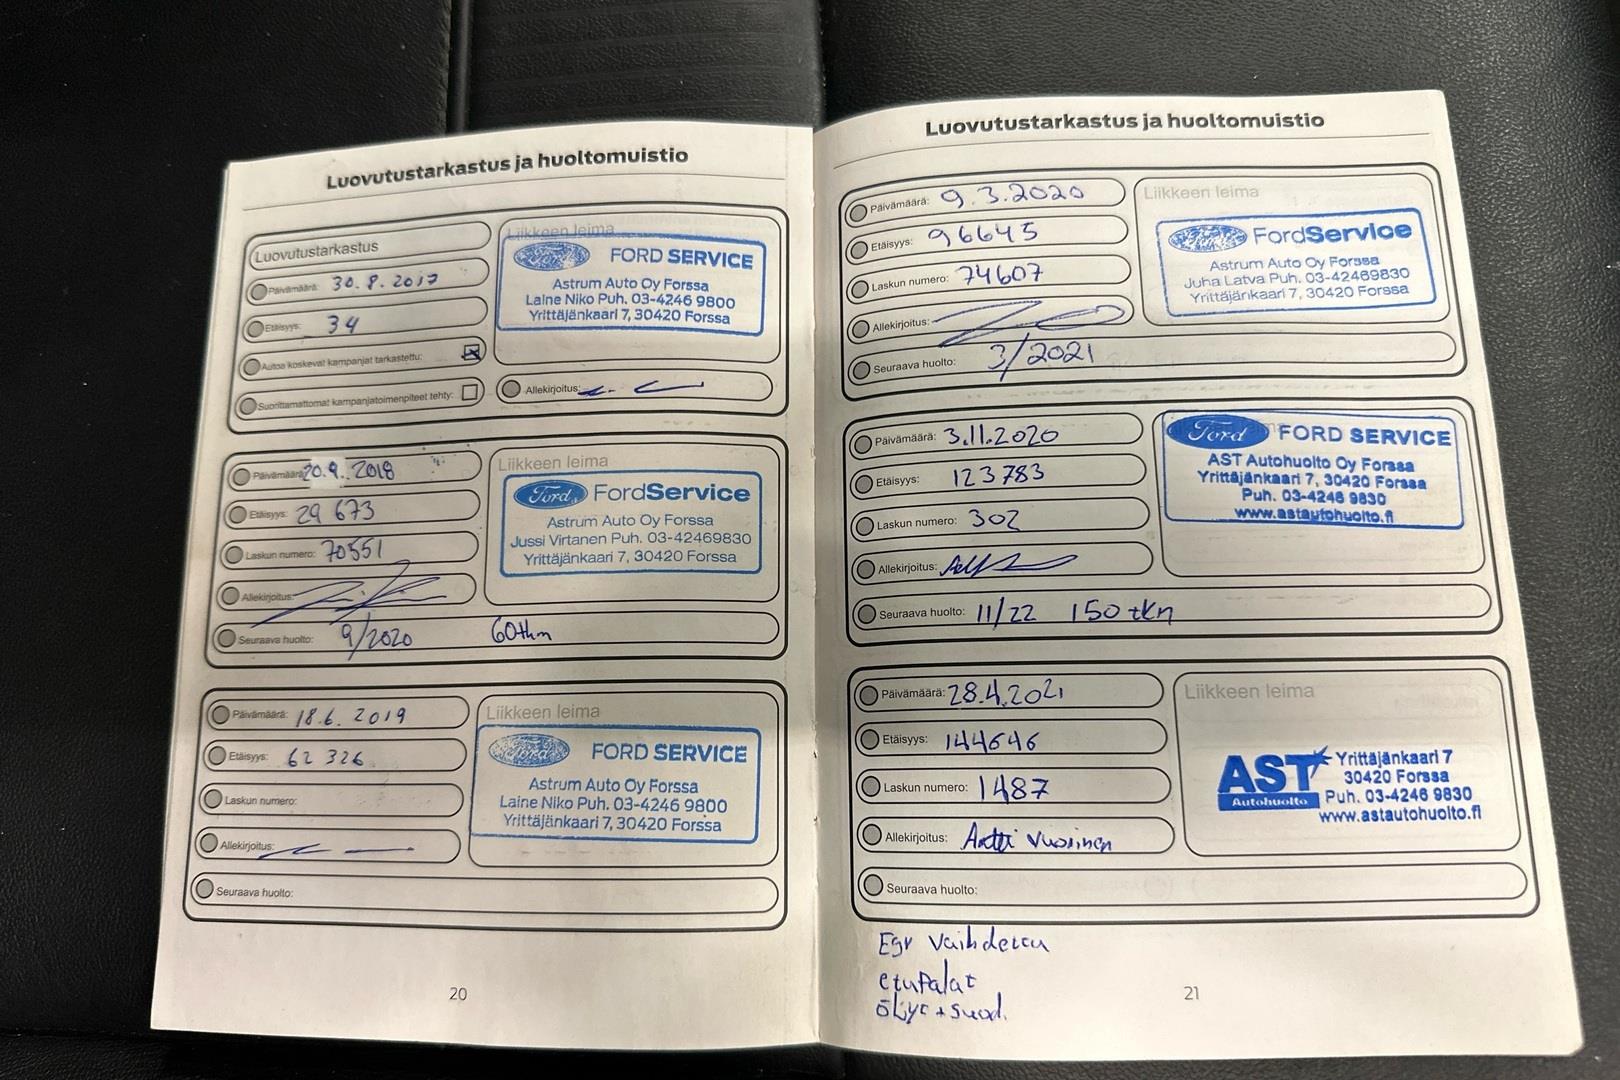 Luovutustarkastus ja huoltomuistio
Luovutustarkastus
Päivämäärä: 30.8.2017
Etäisyys: 34
Autoa koskevat kampanjat tarkastettu:
Suorittamattomat kampanjatoimenpiteet tehty:
Liikkeen leima
Ford
FORD SERVICE
Astrum Auto Oy Forssa
Laine Niko Puh. 03-4246 9800
Yrittäjänkaari 7, 30420 Forssa
Allekirjoitus:
Päivämäärä: 20.9.2018
Etäisyys: 29 673
Laskun numero: 70551
Allekirjoitus:
Seuraava huolto: 9/2020 60tkm
Liikkeen leima
Ford
FordService
Astrum Auto Oy Forssa
Jussi Virtanen Puh. 03-42469830
Yrittäjänkaari 7, 30420 Forssa
Päivämäärä: 18.6. 2019
Etäisyys: 62 326
Laskun numero:
Allekirjoitus:
Seuraava huolto:
Liikkeen leima
Ford
FORD SERVICE
Astrum Auto Oy Forssa
Laine Niko Puh. 03-4246 9800
Yrittäjänkaari 7, 30420 Forssa
20
Luovutustarkastus ja huoltomuistio
Päivämäärä: 9.3.2020
Etäisyys: 96645
Laskun numero: 74607
Allekirjoitus:
Seuraava huolto: 3/2021
Liikkeen leima
Ford
FordService
Astrum Auto Oy Forssa
Juha Latva Puh. 03-42469830
Yrittäjänkaari 7, 30420 Forssa
Päivämäärä: 3.11.2020
Etäisyys: 123783
Laskun numero: 302
Allekirjoitus:
Seuraava huolto: 11/22 150 tkm
Ford
FORD SERVICE
AST Autohuolto Oy Forssa
Yrittäjänkaari 7, 30420 Forssa
Puh. 03-4246 9830
www.astautohuolto.fi
Päivämäärä: 28.4.2021
Etäisyys: 144646
Laskun numero: 1487
Allekirjoitus: Antti Vuorinen
Seuraava huolto:
Liikkeen leima
AST
Autohuolto
Yrittäjänkaari 7
30420 Forssa
Puh. 03-4246 9830
www.astautohuolto.fi
Egr vaihdettu
etupalat
öljyt + suod.
21